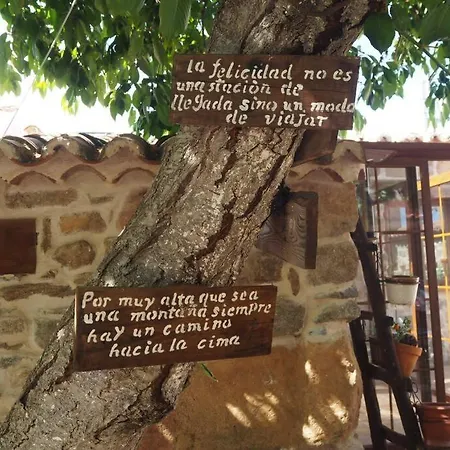 la felicidad no es
una estación de
llegada sino un modo
de viajar
Por muy alta que sea
una montaña siempre
hay un camino
hacia la cima